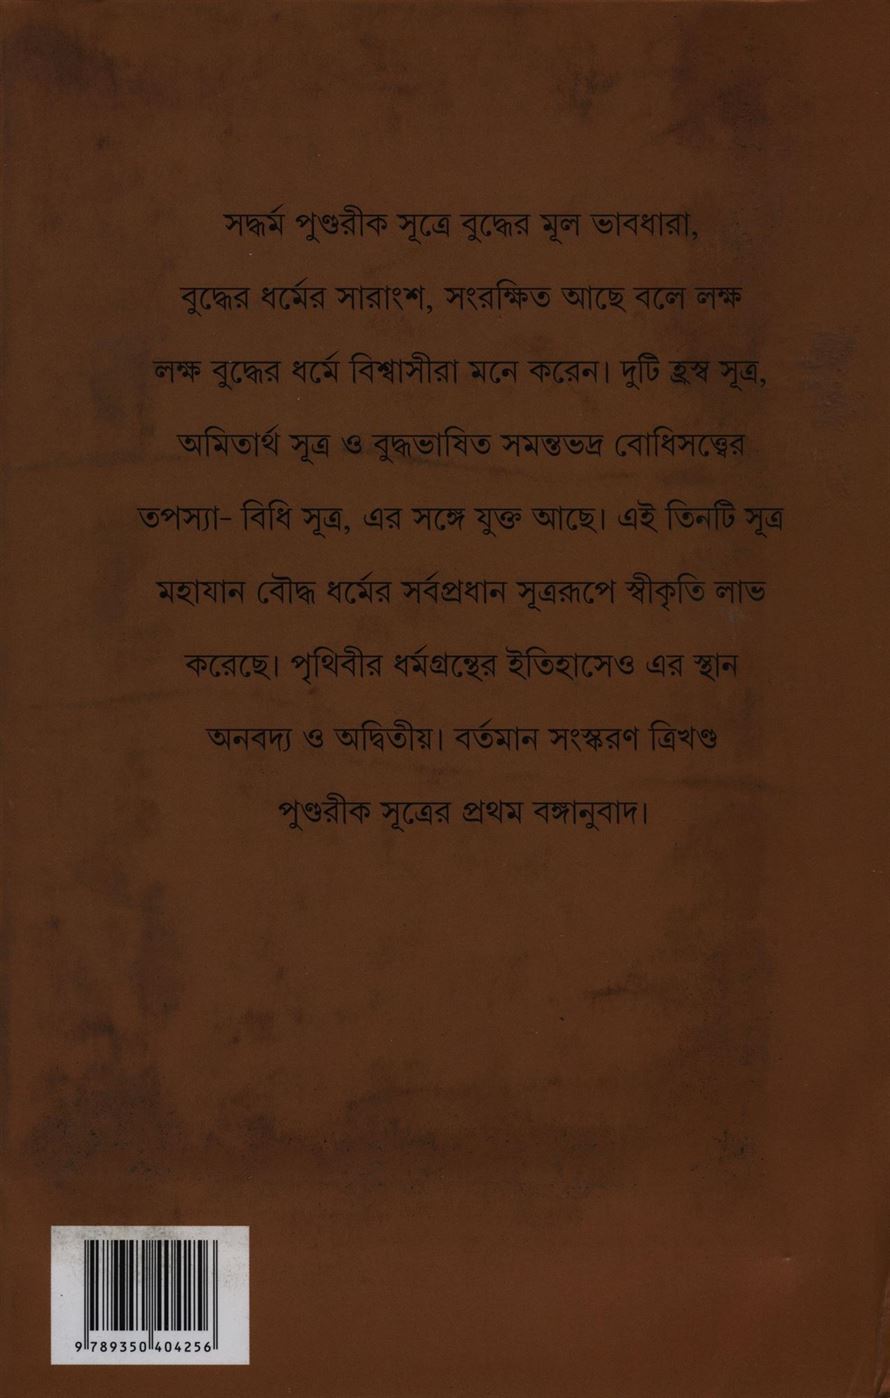 সদ্ধর্ম পুণ্ডরীক সূত্রে বুদ্ধের মূল ভাবধারা,
বুদ্ধের ধর্মের সারাংশ, সংরক্ষিত আছে বলে লক্ষ
লক্ষ বুদ্ধের ধর্মে বিশ্বাসীরা মনে করেন। দুটি হ্রস্ব সূত্র,
অমিতার্থ সূত্র ও বুদ্ধভাষিত সমন্তভদ্র বোধিসত্ত্বের
তপস্যা- বিধি সূত্র, এর সঙ্গে যুক্ত আছে। এই তিনটি সূত্র
মহাযান বৌদ্ধ ধর্মের সর্বপ্রধান সূত্ররূপে স্বীকৃতি লাভ
করেছে। পৃথিবীর ধর্মগ্রন্থের ইতিহাসেও এর স্থান
অনবদ্য ও অদ্বিতীয়। বর্তমান সংস্করণ ত্রিখণ্ড
পুণ্ডরীক সূত্রের প্রথম বঙ্গানুবাদ।
9 789350 404256